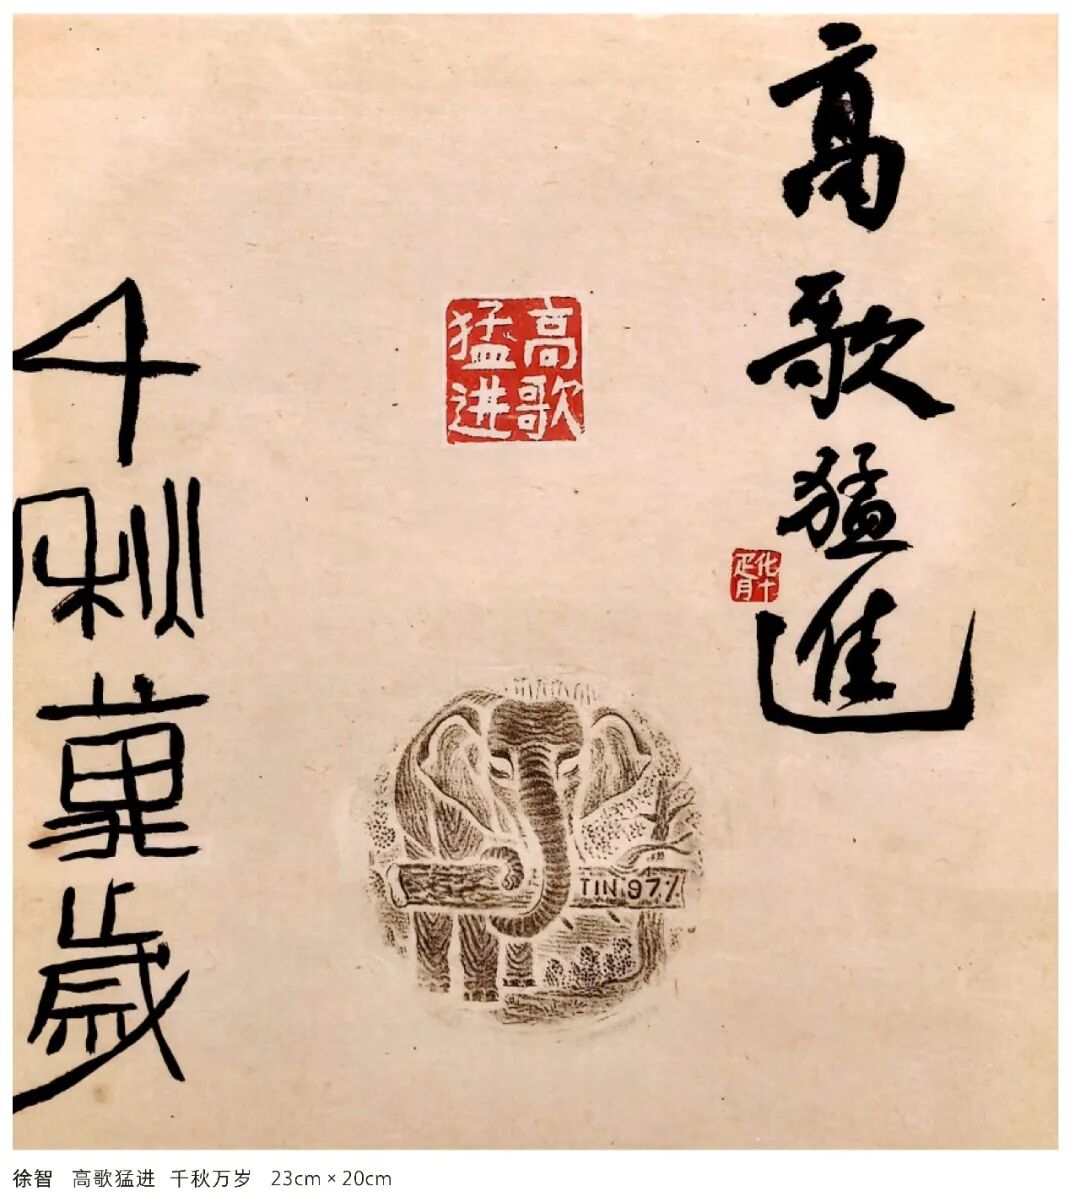 高歌猛進
高歌
猛进
TIN.97%
千秋萬歲
徐智 高歌猛进 千秋万岁 23cm × 20cm